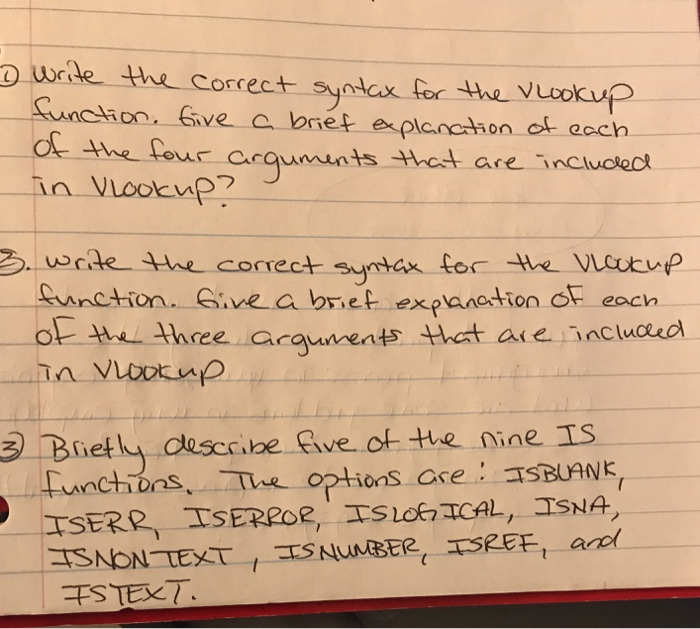 ① Write the correct syntax for the Vlookup
function. Give a brief explanation of each
of the four arguments that are included
in Vlookup?
3. write the correct syntax for the Vlookup
function. Give a brief explanation of each
of the three arguments that are included
in Vlookup
③ Briefly describe five of the nine IS
functions. The options are: ISBLANK,
ISERR, ISERROR, ISLOGICAL, ISNA,
ISNONTEXT, ISNUMBER, ISREF, and
ISTEXT.